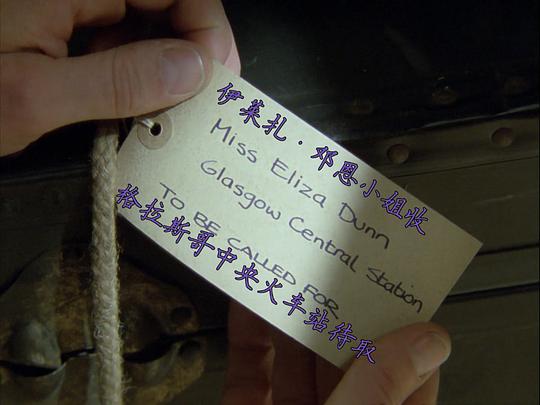 伊莱扎·邓恩小姐收
Miss Eliza Dunn
Glasgow Central Station
TO BE CALLED FOR
格拉斯哥中央火车站待取